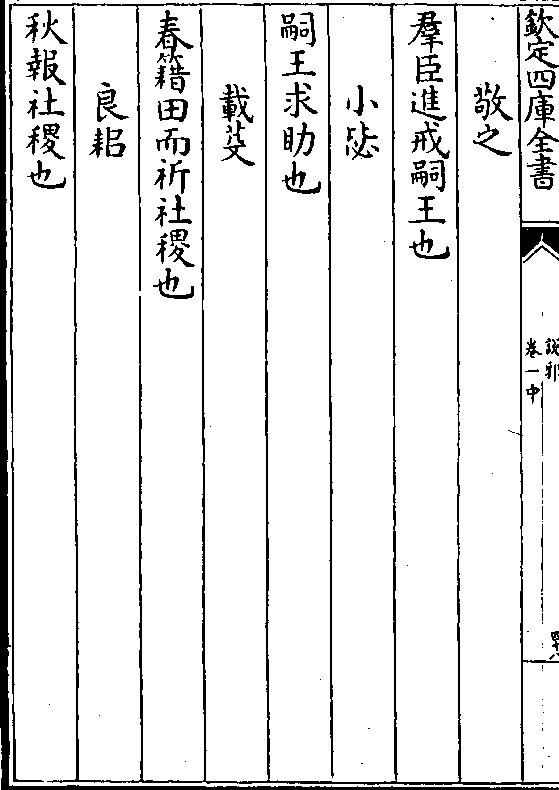 欽定四庫全書
說郛
卷一中
四十八
敬之
羣臣進戒嗣王也
小毖
嗣王求助也
載芟
春籍田而祈社稷也
良耜
秋報社稷也